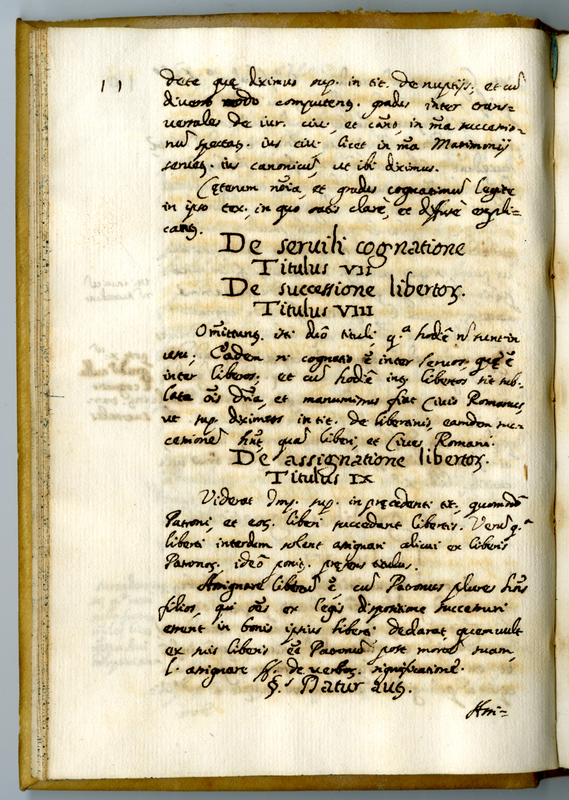 11
dete quę diximus sup. in tit. de nuptijs; et cū
diverso modo computent᷑ gradus inter trans=
versales de iur. civ., et canō, in mā succession
nū spectat᷑ ius civ. licet in mā Matrimonij
servet᷑ ius canonicū, ut ibi diximus.
Cęterum nōīa, et gradus cognationū legite
in ipso tex., in quo satis clarè, et diffusè expli=
cant᷑.
De servili cognatione
Titulus VII
De successione libertoꝝ.
Titulus VIII
Omittunt᷑ isti duō tituli, q.ᵃ hodiē nō sunt in
usu; Eadem ni cognatio ē inter servos quę ē
inter liberos, et cū hodiē int᷑ libertos sit sub-
lata oīs dr̄īa, et manumissus fiat Civis Romanus,
ut sup. diximus in tit. de libertinis, eamdem suc-
cesionē hn̄t, quā liberi, et Cives Romani.
De assignatione libertoꝝ.
Titulus IX
Viderat Imp. sup. in pręcedenti tit., quomodō
Patroni, et eoꝝ liberi succedant libertis. Verū q.ᵃ
liberti interdum solent assignari alicui ex liberis
Patronoꝝ, ideō ponit᷑ pręsens titulus.
Assignare libertū ē, cū Patronus plures hēns
filios, qui oēs ex legis dispositione successuri
erunt in bonis ipsius liberti declarat, quem vult
ex suis liberis eē Patronū post mortē suam,
l. assignare ff. de verboꝝ significatione.
§.ˢ Datur aut᷑.
Assi=